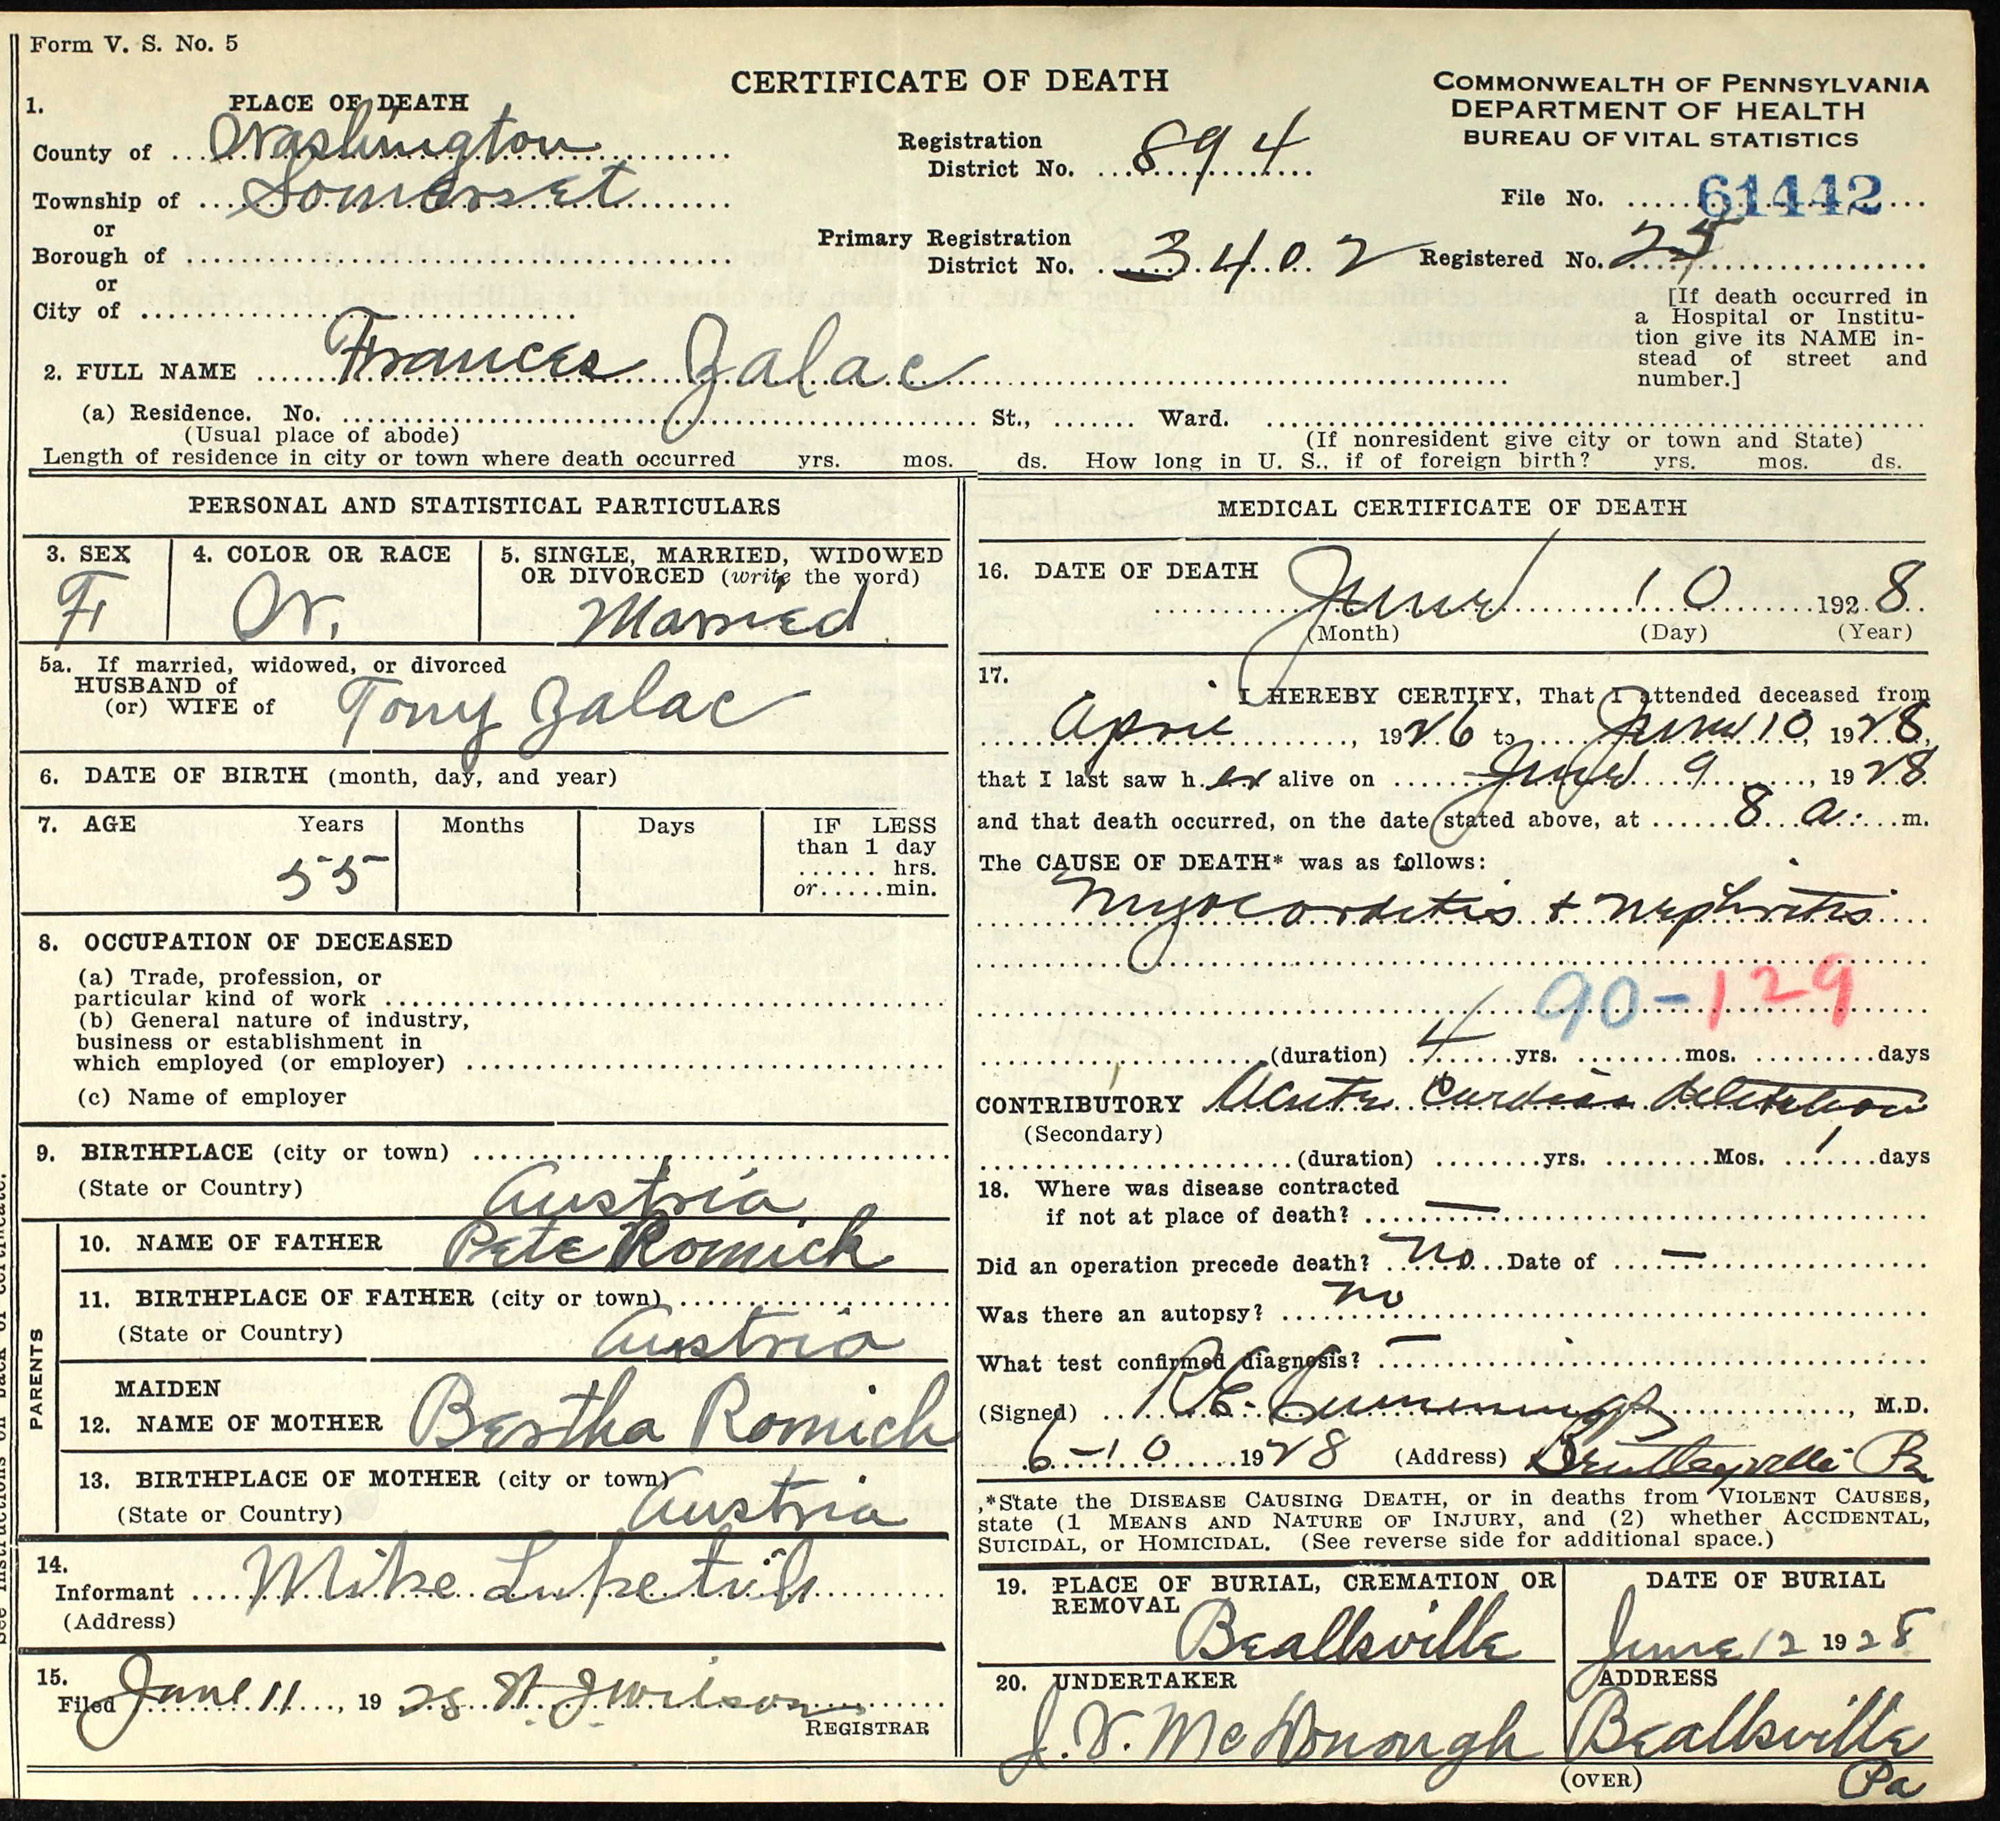 Form V. S. No. 5
CERTIFICATE OF DEATH
COMMONWEALTH OF PENNSYLVANIA
DEPARTMENT OF HEALTH
BUREAU OF VITAL STATISTICS
1. PLACE OF DEATH
County of Washington
Township of Somerset
or
Borough of
or
City of
Registration
District No. 894
Primary Registration
District No. 3402
File No. 61442
Registered No. 25
[If death occurred in
a Hospital or Institu-
tion give its NAME in-
stead of street and
number.]
2. FULL NAME Frances Zalac
(a) Residence. No. St., Ward.
(Usual place of abode) (If nonresident give city or town and State)
Length of residence in city or town where death occurred yrs. mos. ds. How long in U. S., if of foreign birth? yrs. mos. ds.
PERSONAL AND STATISTICAL PARTICULARS
3. SEX
F
4. COLOR OR RACE
W.
5. SINGLE, MARRIED, WIDOWED
OR DIVORCED (write the word)
Married
5a. If married, widowed, or divorced
HUSBAND of
(or) WIFE of Tony Zalac
6. DATE OF BIRTH (month, day, and year)
7. AGE Years Months Days IF LESS
than 1 day
hrs.
or min.
55
8. OCCUPATION OF DECEASED
(a) Trade, profession, or
particular kind of work
(b) General nature of industry,
business or establishment in
which employed (or employer)
(c) Name of employer
9. BIRTHPLACE (city or town)
(State or Country) Austria
PARENTS
10. NAME OF FATHER Pete Romich
11. BIRTHPLACE OF FATHER (city or town)
(State or Country) Austria
MAIDEN
12. NAME OF MOTHER Bertha Romich
13. BIRTHPLACE OF MOTHER (city or town)
(State or Country) Austria
14.
Informant Mike
(Address)
15.
Filed June 11, 1928 Wilson
REGISTRAR
See instructions on back of certificate.
MEDICAL CERTIFICATE OF DEATH
16. DATE OF DEATH
June 10 1928
(Month) (Day) (Year)
17.
I HEREBY CERTIFY, That I attended deceased from
April, 1926 to June 10, 1928,
that I last saw her alive on June 9, 1928
and that death occurred, on the date stated above, at 8 a. m.
The CAUSE OF DEATH* was as follows:
Myocarditis + nephritis
90-129
(duration) 4 yrs. mos. days
CONTRIBUTORY Acute Cardiac dilatation
(Secondary)
(duration) yrs. Mos. 1 days
18. Where was disease contracted
if not at place of death? —
Did an operation precede death? no Date of —
Was there an autopsy? no
What test confirmed diagnosis? —
(Signed) Cummings, M.D.
6-10 1928 (Address) Bentleyville Pa
*State the DISEASE CAUSING DEATH, or in deaths from VIOLENT CAUSES,
state (1 MEANS AND NATURE OF INJURY, and (2) whether ACCIDENTAL,
SUICIDAL, OR HOMICIDAL. (See reverse side for additional space.)
19. PLACE OF BURIAL, CREMATION OR
REMOVAL
Beallsville
DATE OF BURIAL
June 12 1928
20. UNDERTAKER
J. V. McDonough
ADDRESS
Beallsville
Pa
(OVER)